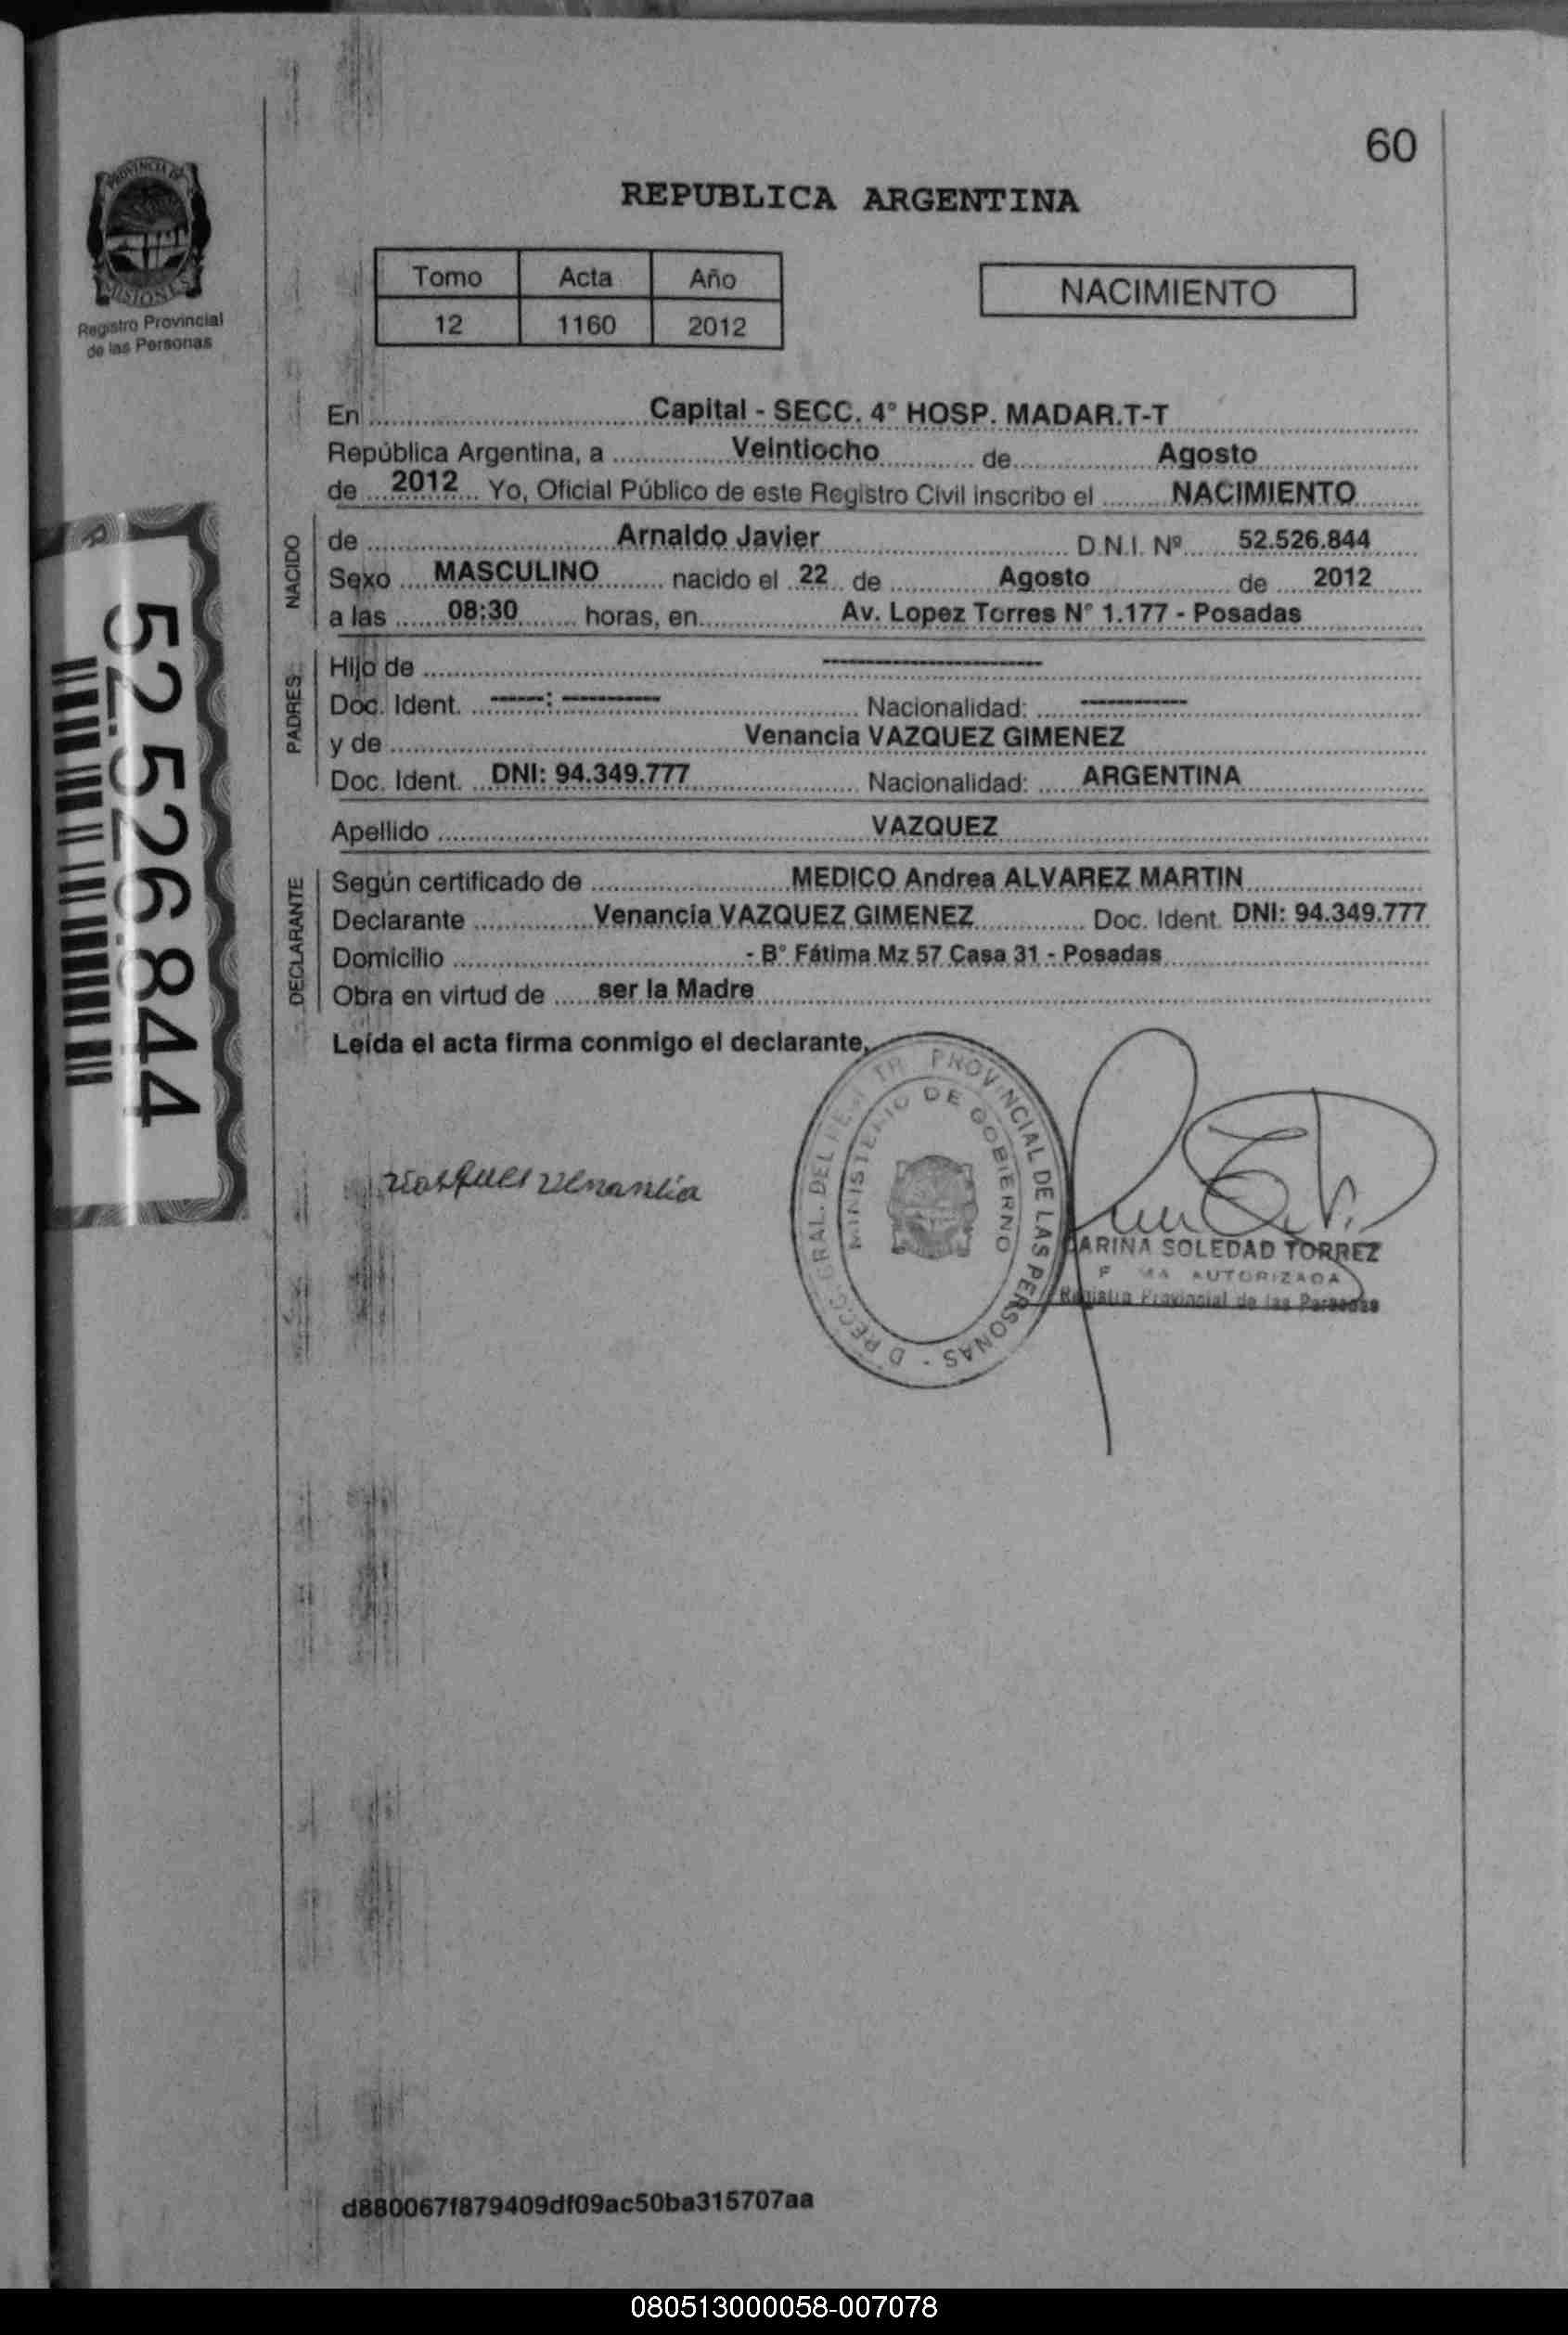 60
PROVINCIA DE
MISIONES
Registro Provincial
de las Personas
REPUBLICA ARGENTINA
Tomo Acta Año
12 1160 2012
NACIMIENTO
En Capital - SECC. 4° HOSP. MADAR.T-T
República Argentina, a Veintiocho de Agosto
de 2012 Yo, Oficial Público de este Registro Civil inscribo el NACIMIENTO
NACIDO
de Arnaldo Javier D.N.I. Nº 52.526.844
Sexo MASCULINO nacido el 22 de Agosto de 2012
a las 08:30 horas, en Av. Lopez Torres N° 1.177 - Posadas
PADRES
Hijo de ----------
Doc. Ident. -----: --------- Nacionalidad: ----------
y de Venancia VAZQUEZ GIMENEZ
Doc. Ident. DNI: 94.349.777 Nacionalidad: ARGENTINA
Apellido VAZQUEZ
DECLARANTE
Según certificado de MEDICO Andrea ALVAREZ MARTIN
Declarante Venancia VAZQUEZ GIMENEZ Doc. Ident. DNI: 94.349.777
Domicilio - B° Fátima Mz 57 Casa 31 - Posadas
Obra en virtud de ser la Madre
Leída el acta firma conmigo el declarante,
52.526.844
PROVINCIAL DE LAS PERSONAS -
MINISTERIO DE GOBIERNO
Venancia
SOLEDAD TORREZ
AUTORIZADA
Registro Provincial de las Personas
d880067f879409df09ac50ba315707aa
080513000058-007078